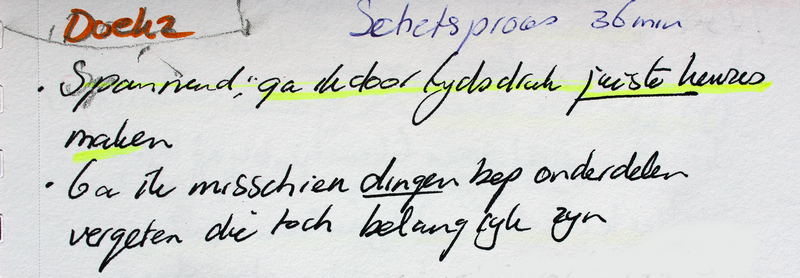 Doek 2 Schetsproces 36 min
• Spannend, "ga ik door tydsdruk juiste keuzes
maken
• Ga ik misschien dingen bep onderdelen
vergeten die toch belangryk zyn